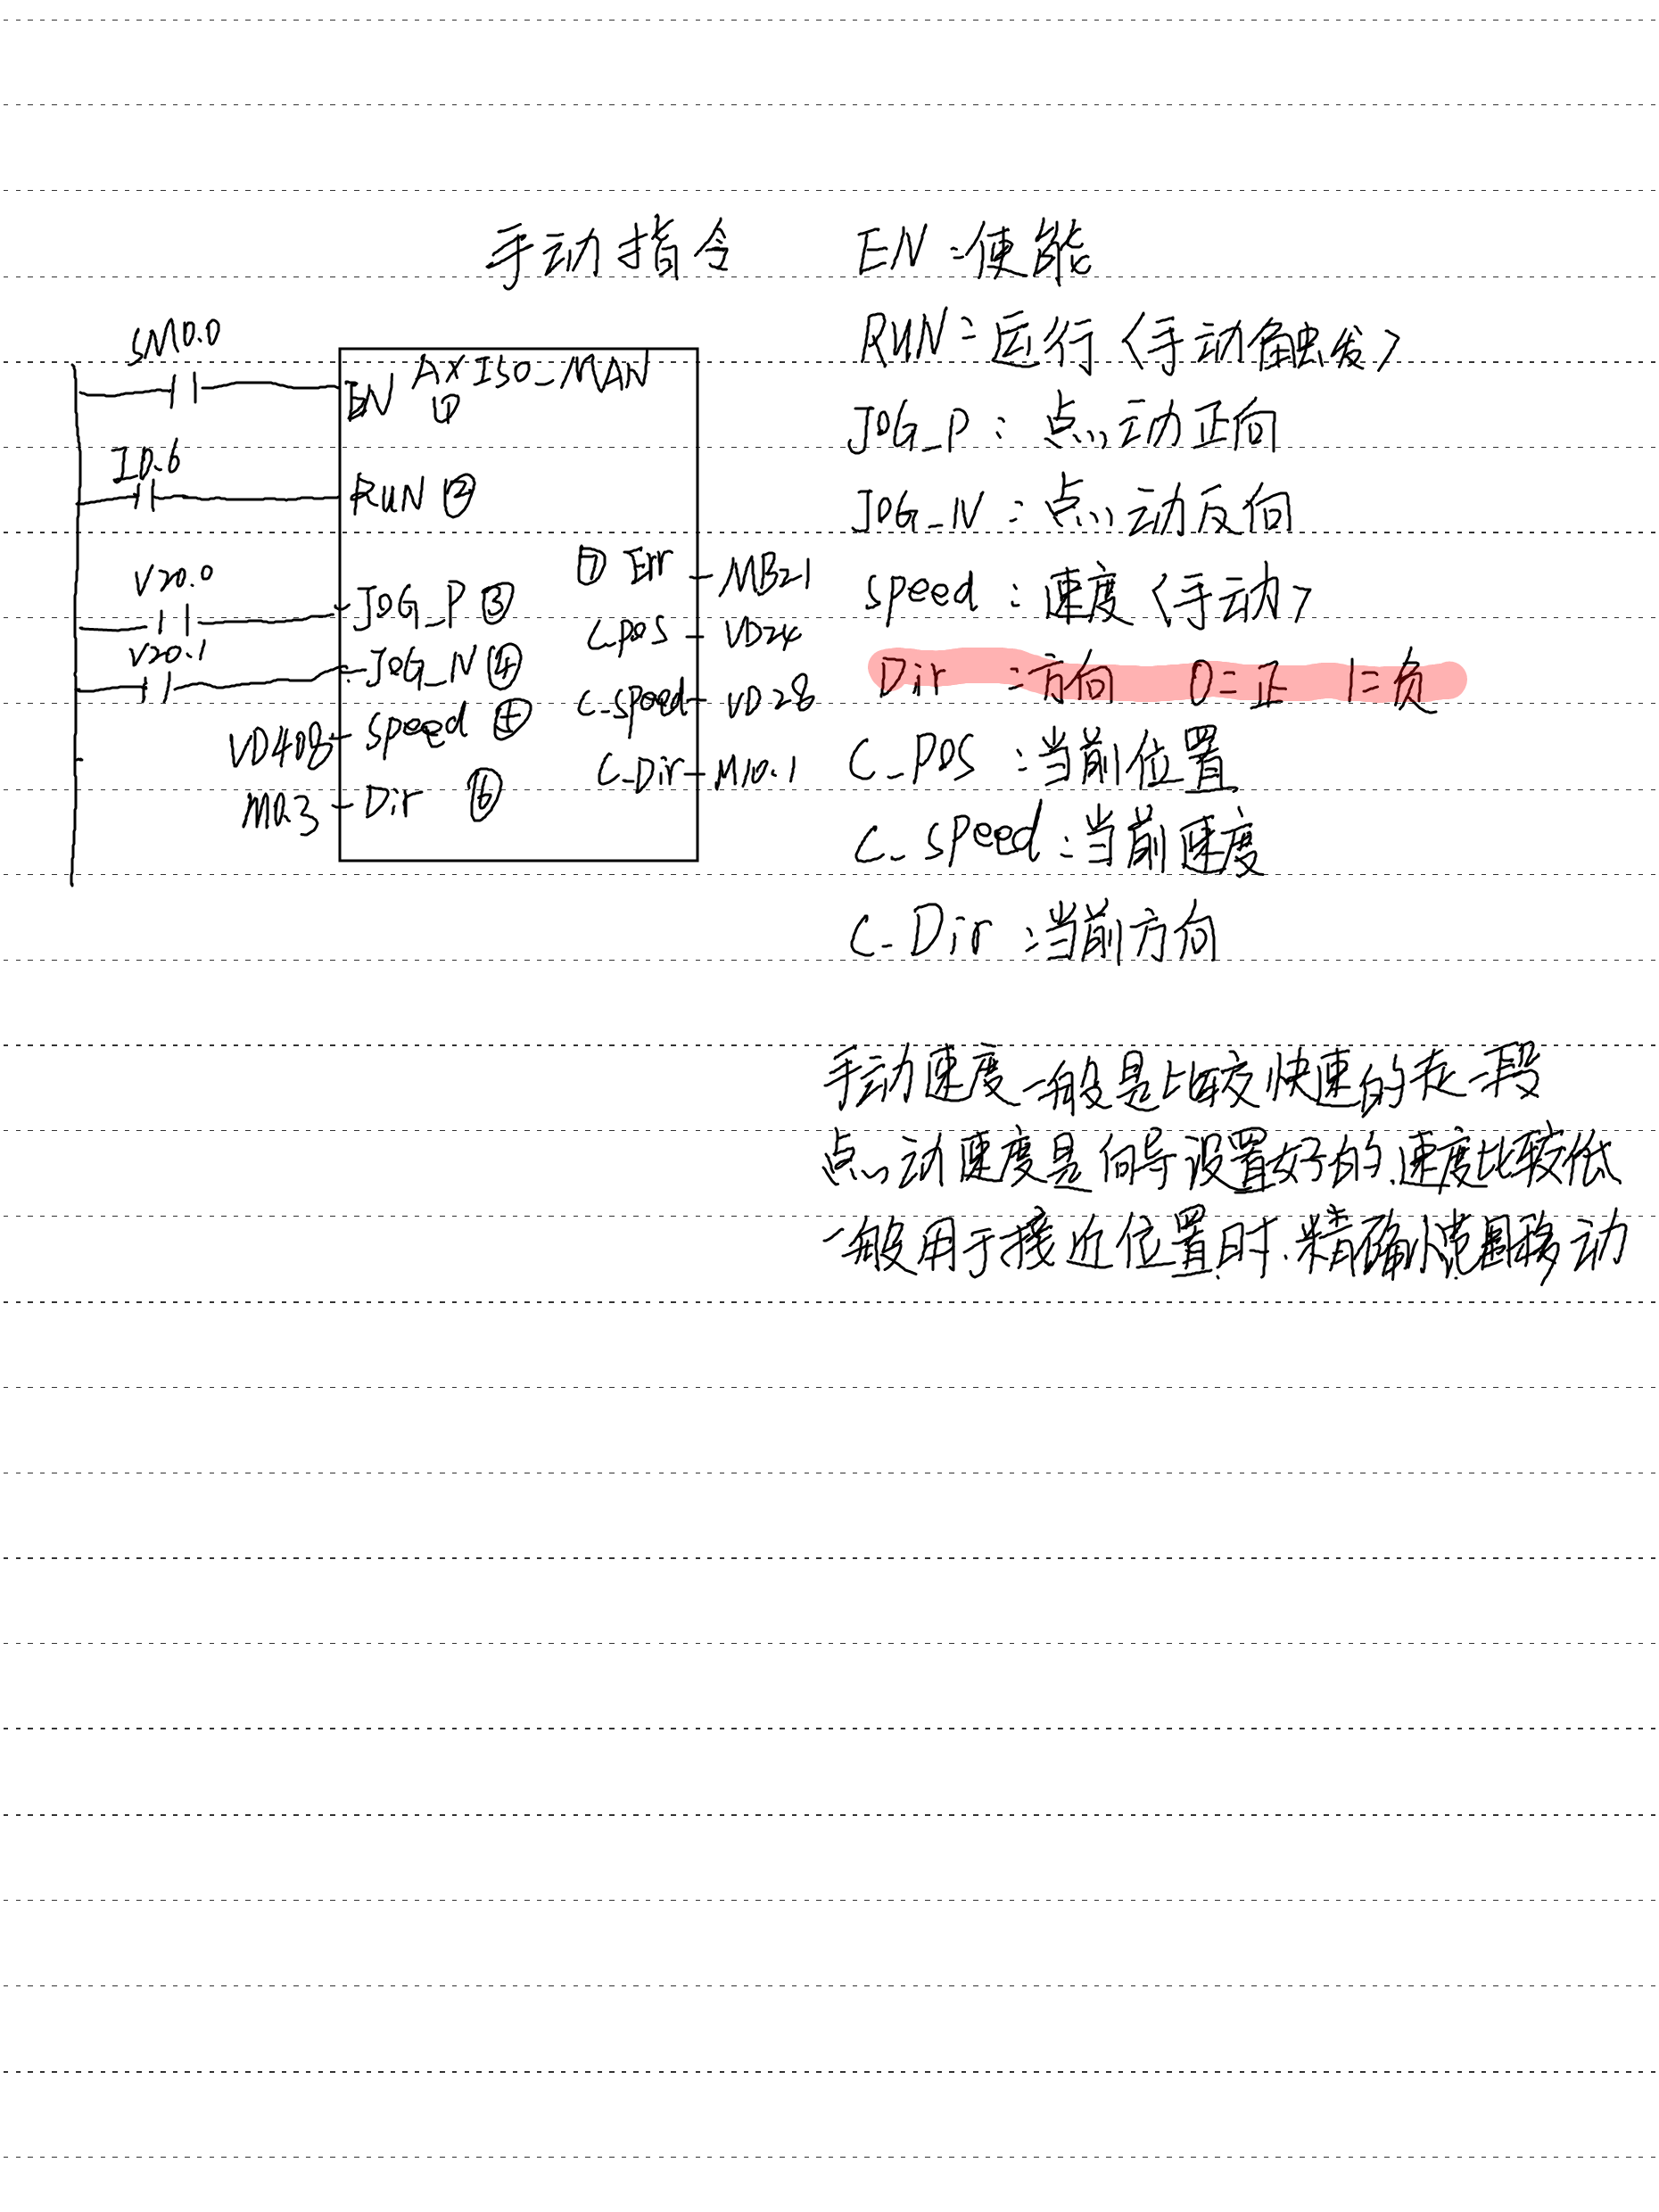 手动指令
SM0.0
EN AXIS0_MAN
①
I0.6
RUN ②
V20.0
JOG_P ③
V20.1
JOG_N ④
VD408 Speed ⑤
M0.3 Dir ⑥
⑦ Err MB21
C_POS VD24
C_Speed VD28
C_Dir M10.1
EN:使能
RUN:运行<手动触发>
JOG_P:点动正向
JOG_N:点动反向
Speed:速度<手动>
Dir :方向 0=正 1=负
C_POS:当前位置
C_Speed:当前速度
C_Dir:当前方向
手动速度一般是比较快速的走一段
点动速度是向导设置好的.速度比较低
一般用于接近位置时.精确小范围移动